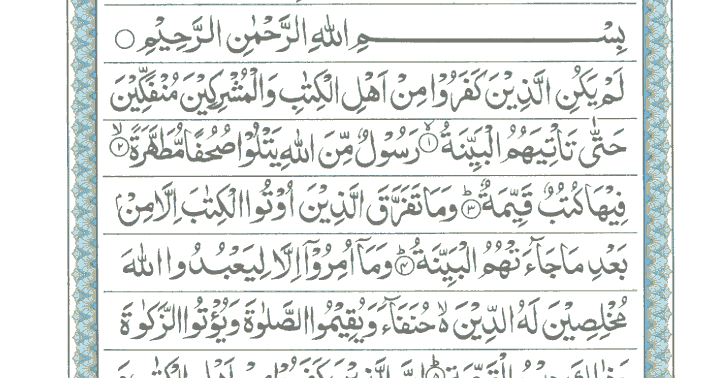 بِسْــــــــمِ اللهِ الرَّحْمٰنِ الرَّحِيْمِ ○
لَمْ يَكُنِ الَّذِيْنَ كَفَرُوْا مِنْ اَهْلِ الْكِتٰبِ وَالْمُشْرِكِيْنَ مُنْفَكِّيْنَ
حَتّٰى تَاْتِيَهُمُ الْبَيِّنَةُ ۙ﴿۱﴾ رَسُوْلٌ مِّنَ اللهِ يَتْلُوْا صُحُفًا مُّطَهَّرَةً ۙ﴿۲﴾
فِيْهَا كُتُبٌ قَيِّمَةٌ ؕ﴿۳﴾ وَمَا تَفَرَّقَ الَّذِيْنَ اُوْتُوا الْكِتٰبَ اِلَّا مِنْۢ
بَعْدِ مَا جَآءَتْهُمُ الْبَيِّنَةُ ؕ﴿۴﴾ وَمَاۤ اُمِرُوْۤا اِلَّا لِيَعْبُدُوا اللهَ
مُخْلِصِيْنَ لَهُ الدِّيْنَ ۙ۬ حُنَفَآءَ وَيُقِيْمُوا الصَّلٰوةَ وَيُؤْتُوا الزَّكٰوةَ